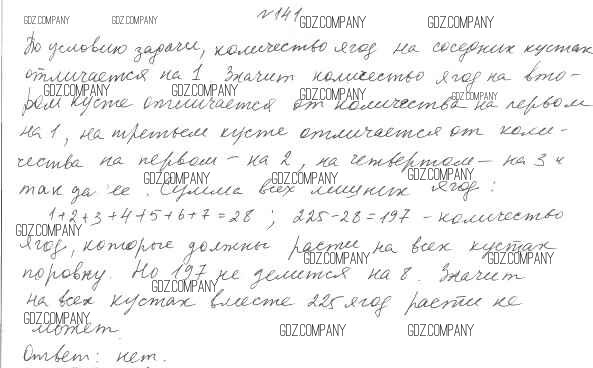 №141
По условию задачи, количество ягод на соседних кустах
отличается на 1. Значит количество ягод на вто-
ром кусте отличается от количества на первом
на 1, на третьем кусте отличается от коли-
чества на первом - на 2, на четвертом - на 3 и
так далее. Сумма всех лишних ягод:
1+2+3+4+5+6+7=28; 225-28=197 - количество
ягод, которые должны расти на всех кустах
поровну. Но 197 не делится на 8. Значит
на всех кустах вместе 225 ягод расти не
может
Ответ: нет.
GDZ.COMPANY GDZ.COMPANY GDZ.COMPANY GDZ.COMPANY
GDZ.COMPANY GDZ.COMPANY GDZ.COMPANY GDZ.COMPANY
GDZ.COMPANY GDZ.COMPANY GDZ.COMPANY
GDZ.COMPANY
GDZ.COMPANY GDZ.COMPANY
GDZ.COMPANY
GDZ.COMPANY GDZ.COMPANY GDZ.COMPANY